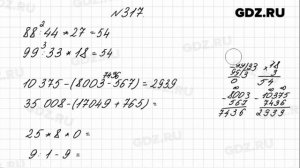 GDZ.RU
№317
88² 44 * 27 = 54
99³ 33 * 18 = 54
7436
10 375 - (8003 - 567) = 2939
35 008 - (17049 + 765) =
8003 10375
567 7436
7436 2939
25 * 8 * 0 =
9 · 1 - 9 =
GDZ.RU